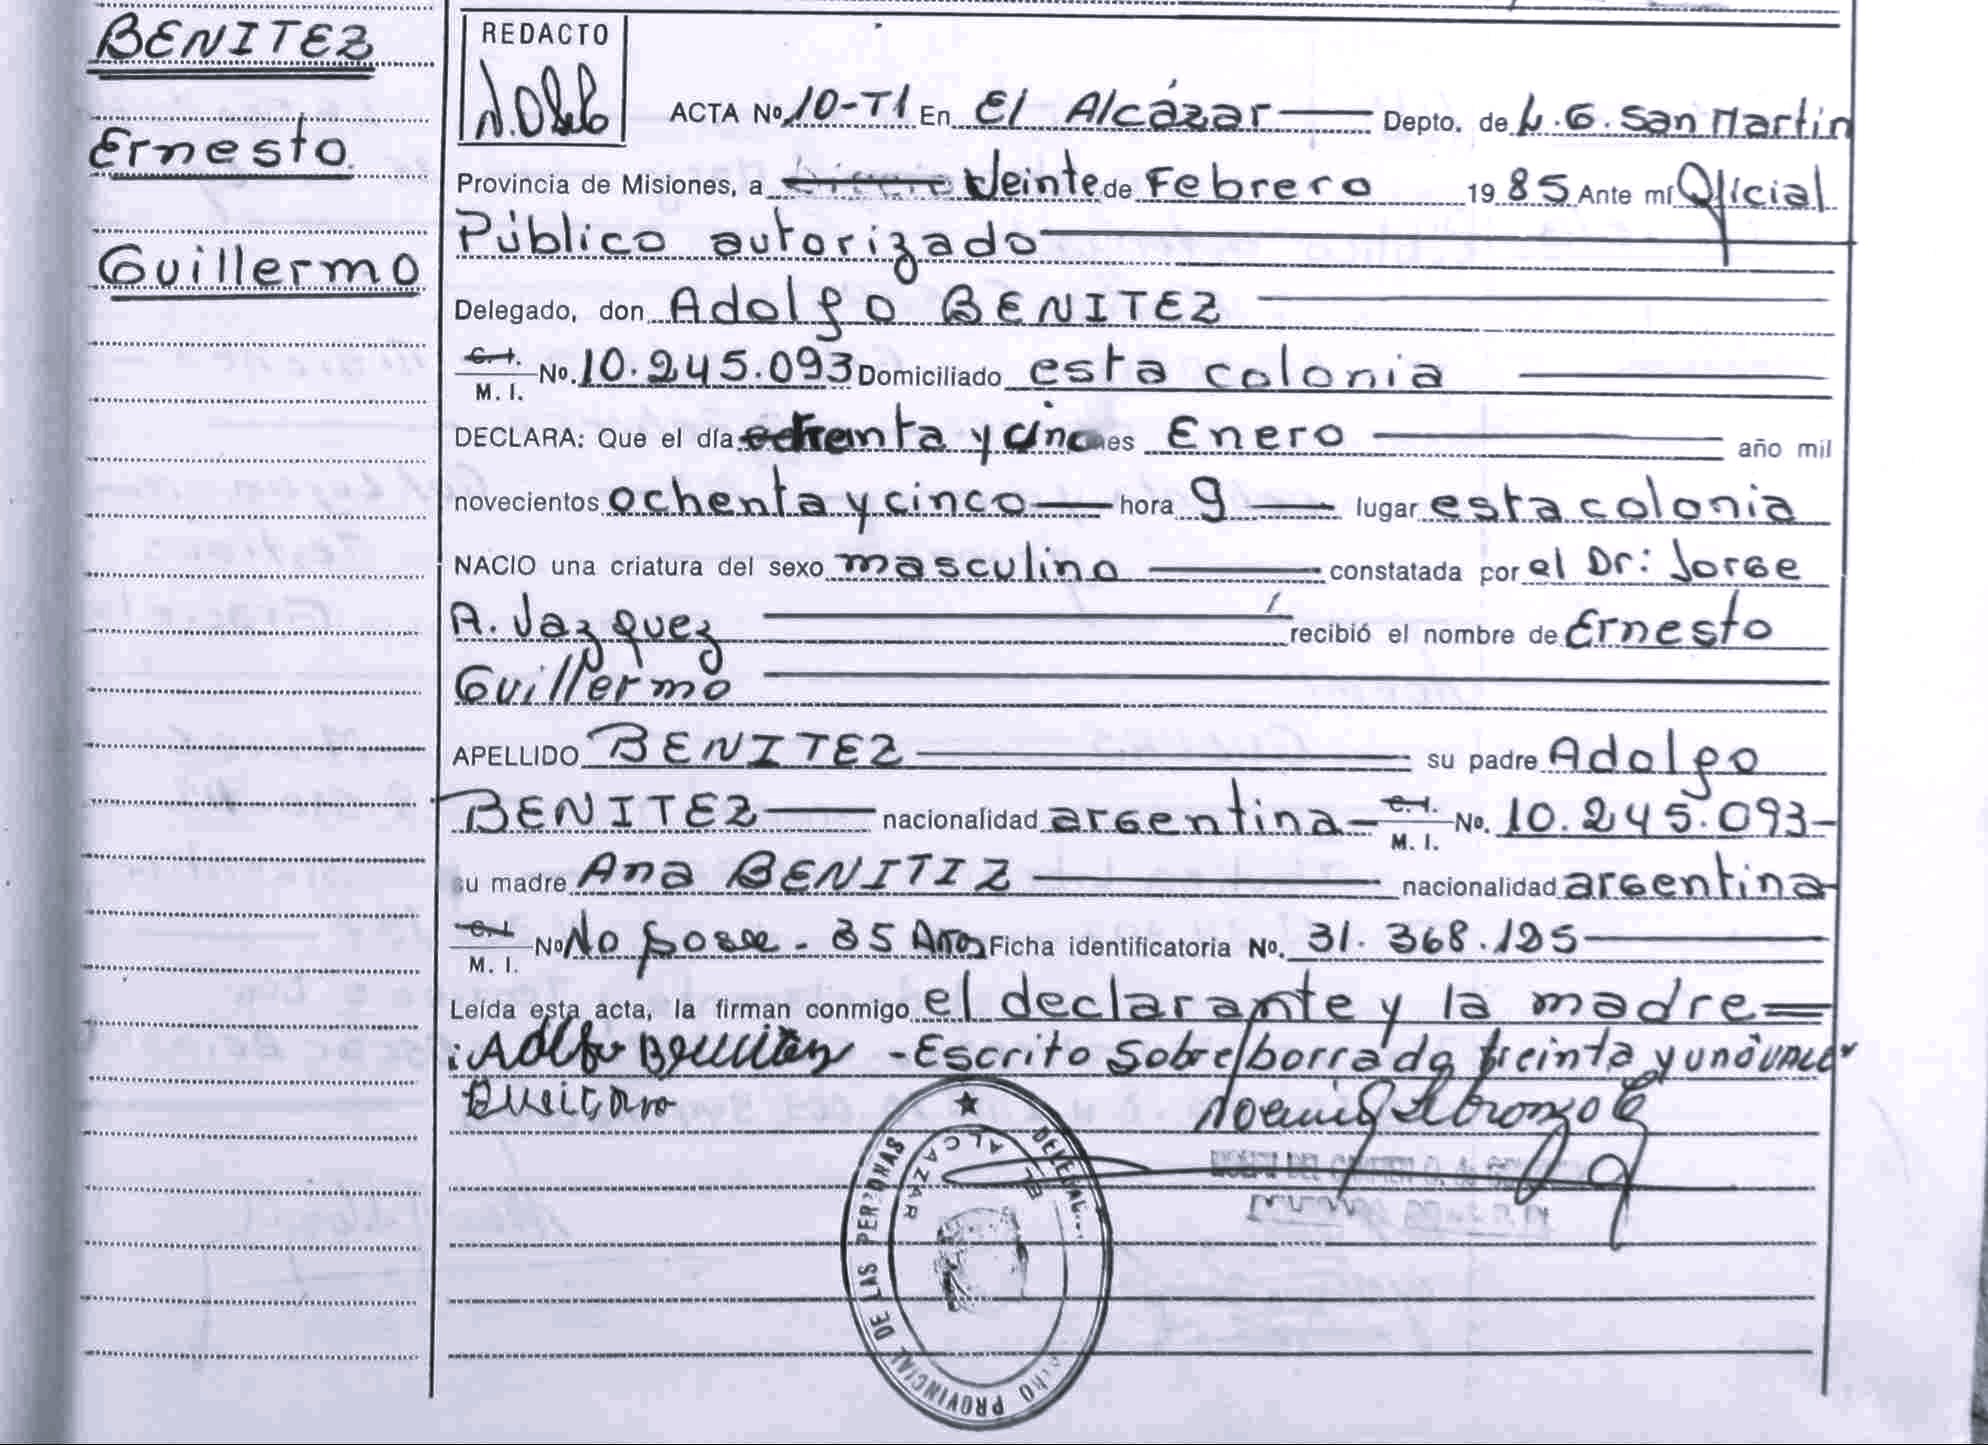 BENITEZ
Ernesto
Guillermo
REDACTO
ACTA Nº 10-T1 En El Alcázar Depto. de L.G. San Martin
Provincia de Misiones, a Veinte de Febrero 1985 Ante mí Oficial
Público autorizado
Delegado, don Adolfo BENITEZ
C.I.
M. I. Nº. 10.245.093 Domiciliado esta colonia
DECLARA: Que el día mes Enero año mil
novecientos ochenta y cinco hora 9 lugar esta colonia
NACIO una criatura del sexo masculino constatada por el Dr: Jorge
A. Vazquez recibió el nombre de Ernesto
Guillermo
APELLIDO BENITEZ su padre Adolfo
BENITEZ nacionalidad argentina C.I.
M. I. Nº. 10.245.093-
su madre Ana BENITIZ nacionalidad argentina
C.I.
M. I. Nº No posee - 35 Años Ficha identificatoria Nº. 31.368.125
Leída esta acta, la firman conmigo el declarante y la madre
-Escrito sobre/borrado treinta y uno VALE
DE LAS PERSONAS
PROVINCIAL
EL ALCAZAR